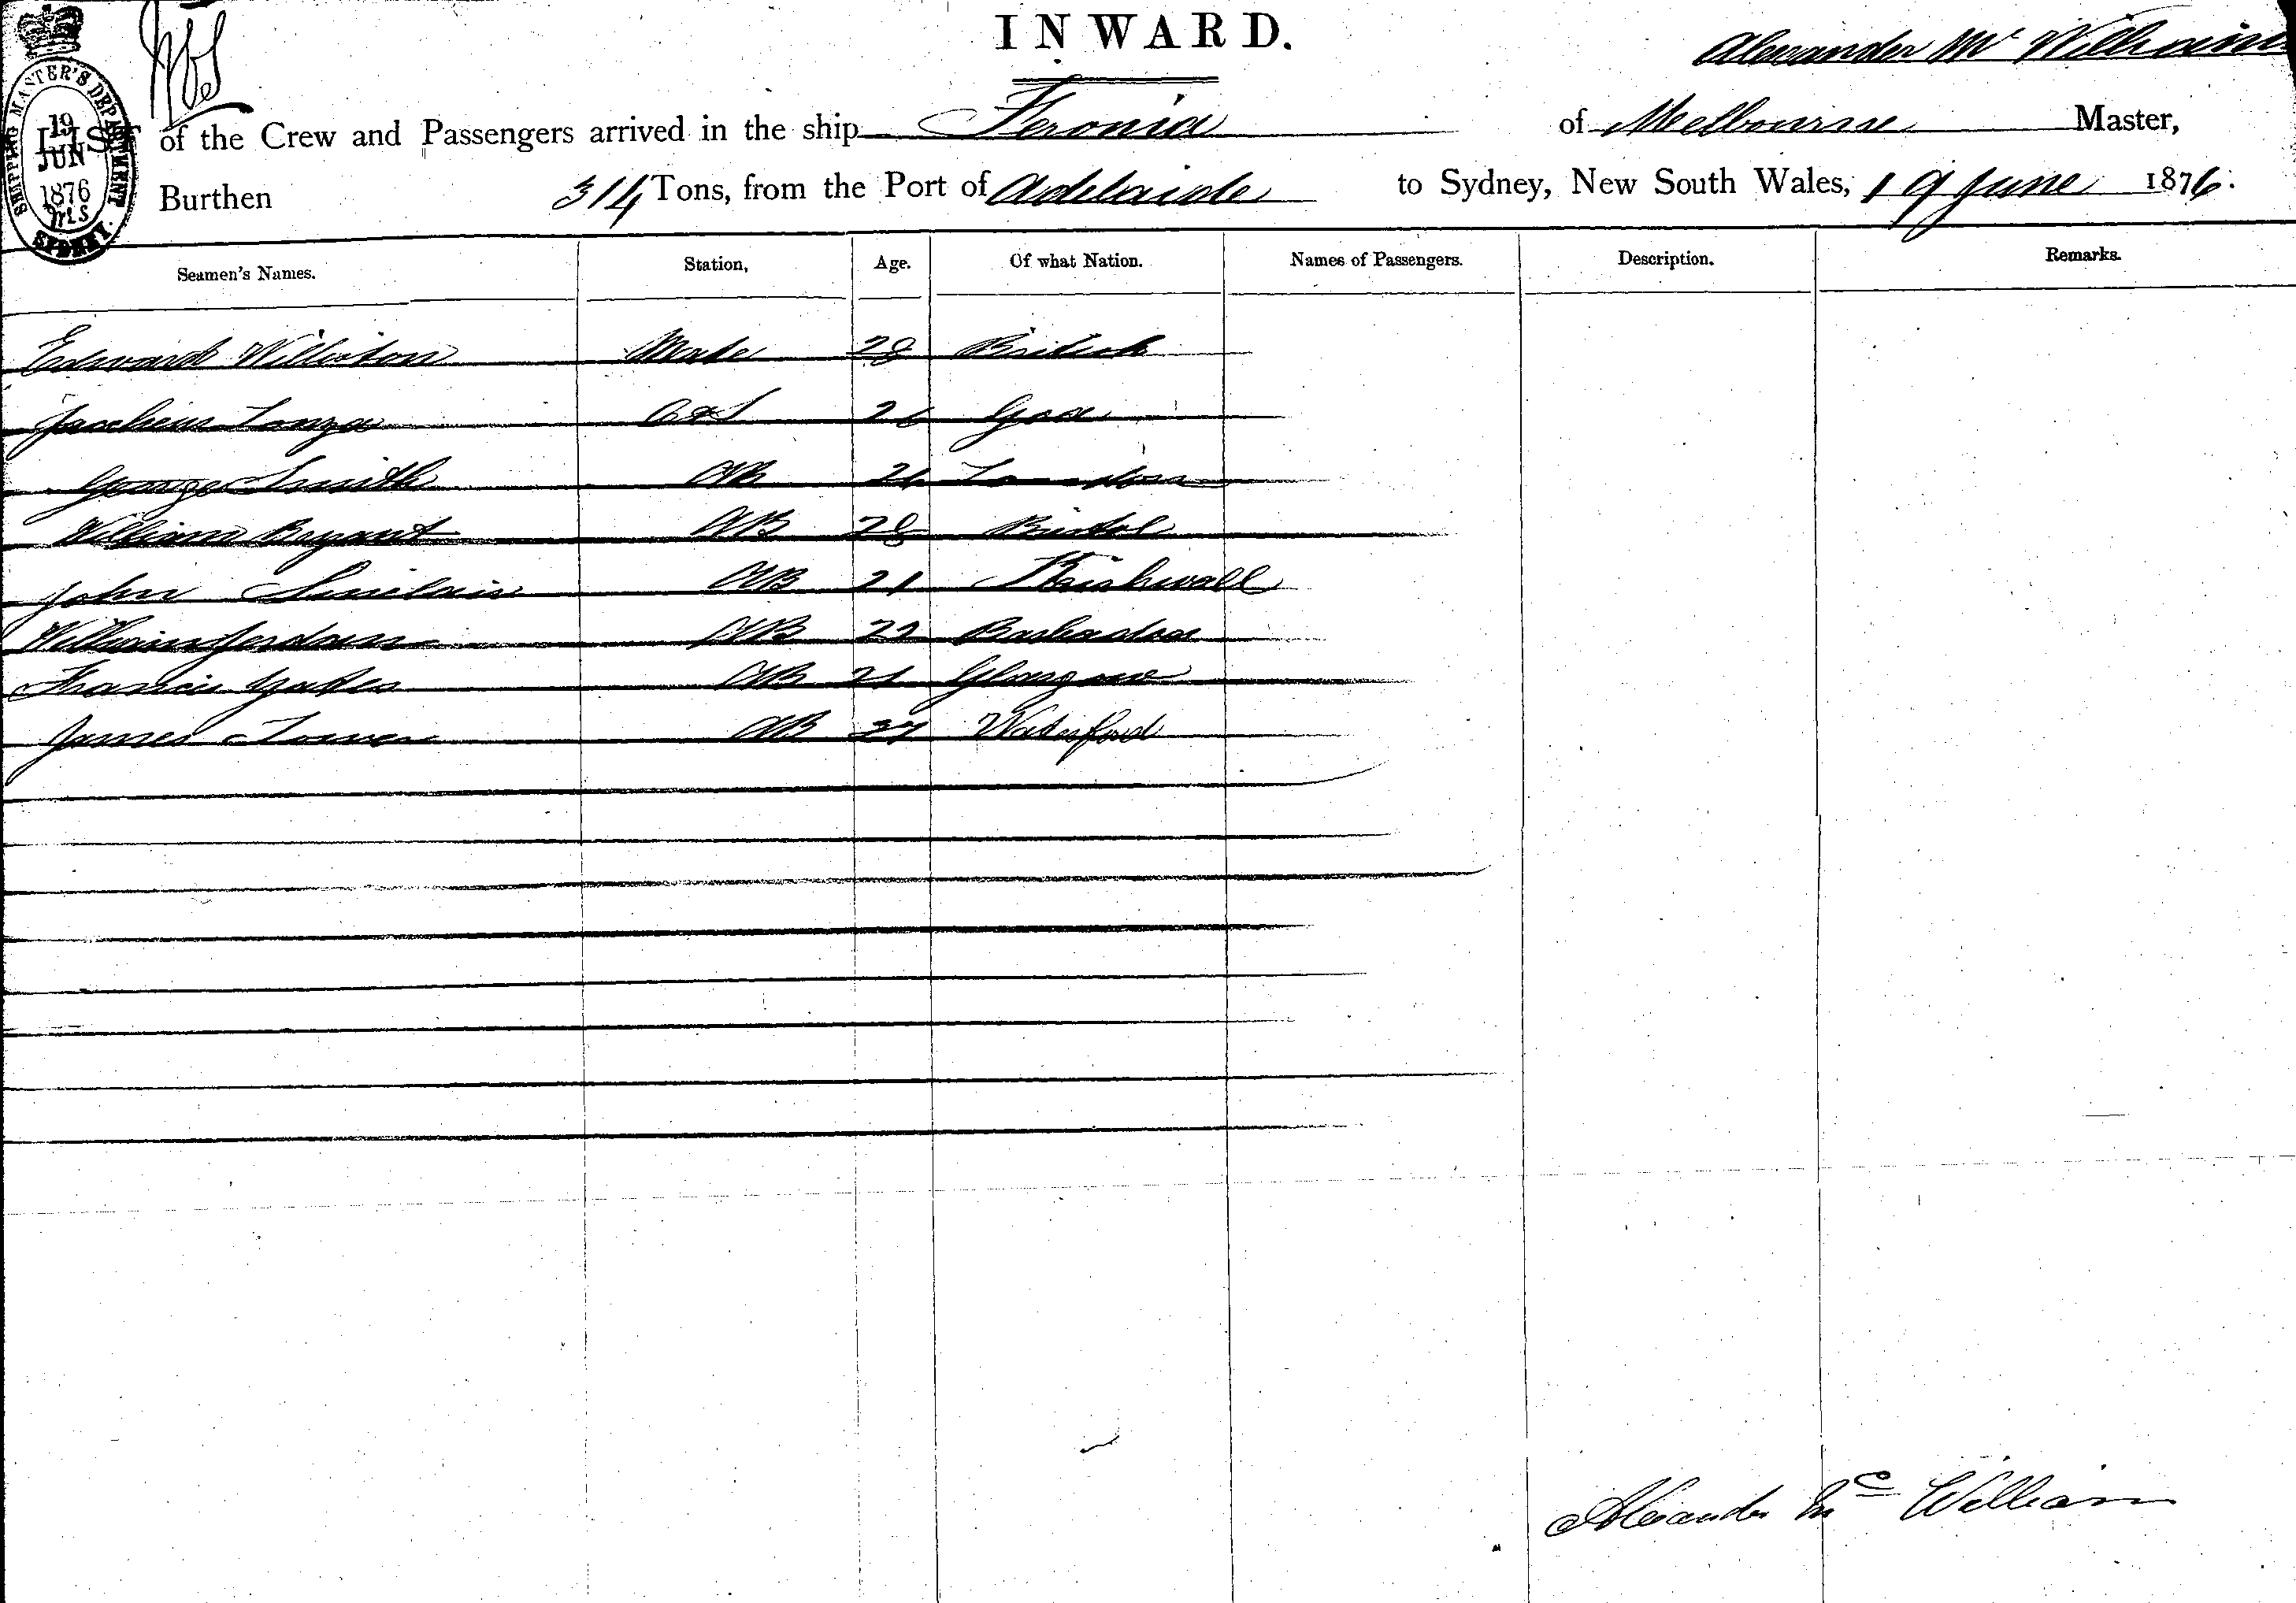 INWARD.
Alexander Mc William
LIST of the Crew and Passengers arrived in the ship Feronia of Melbourne Master,
Burthen 314 Tons, from the Port of Adelaide to Sydney, New South Wales, 19 June 1876.
SHIPPING MASTER'S DEPARTMENT
19
JUN
1876
SYDNEY.
Seamen's Names. Station, Age. Of what Nation. Names of Passengers. Description. Remarks.
Edward Mate 28 British
C & S 26 Goa
George Smith AB 26 London
William Bryant AB 28 Bristol
John Sinclair AB 21 Kirkwall
William Jordan AB 22 Barbadoes
Francis Yates AB 21 Glasgow
James AB 27 Waterford
Alexander Mc William